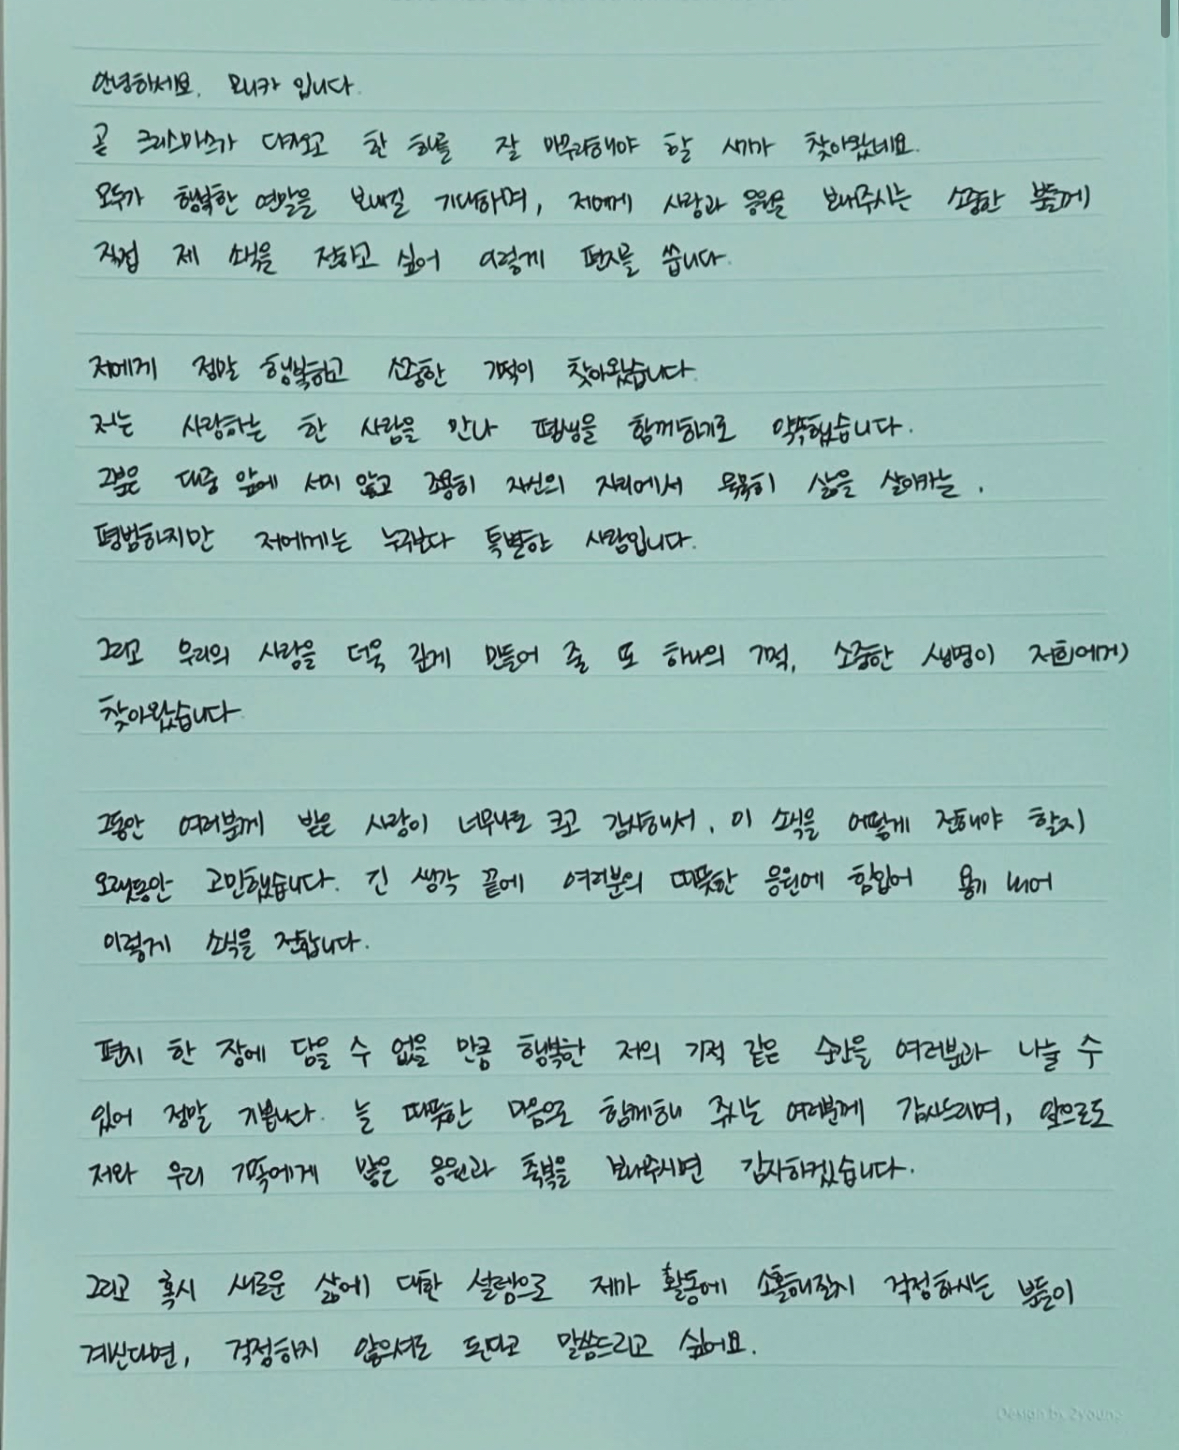 안녕하세요. 모니카 입니다.
곧 크리스마스가 다가오고 한 해를 잘 마무리해야 할 시기가 찾아왔네요.
모두가 행복한 연말을 보내길 기대하며, 저에게 사랑과 응원을 보내주시는 소중한 분들께
직접 제 소식을 전하고 싶어 이렇게 편지를 씁니다.
저에게 정말 행복하고 소중한 기적이 찾아왔습니다.
저는 사랑하는 한 사람을 만나 평생을 함께하기로 약속했습니다.
그분은 대중 앞에 서지 않고 조용히 자신의 자리에서 묵묵히 삶을 살아가는,
평범하지만 저에게는 누구보다 특별한 사람입니다.
그리고 우리의 사랑을 더욱 깊게 만들어 줄 또 하나의 기적, 소중한 생명이 저희에게
찾아왔습니다.
그동안 여러분께 받은 사랑이 너무나도 크고 감사해서, 이 소식을 어떻게 전해야 할지
오랫동안 고민했습니다. 긴 생각 끝에 여러분의 따뜻한 응원에 힘입어 용기 내어
이렇게 소식을 전합니다.
편지 한 장에 담을 수 없을 만큼 행복한 저의 기적 같은 순간을 여러분과 나눌 수
있어 정말 기쁩니다. 늘 따뜻한 마음으로 함께해 주시는 여러분께 감사드리며, 앞으로도
저와 우리 가족에게 많은 응원과 축복을 보내주시면 감사하겠습니다.
그리고 혹시 새로운 삶에 대한 설렘으로 제가 활동에 소홀해질지 걱정하시는 분들이
계신다면, 걱정하지 않으셔도 된다고 말씀드리고 싶어요.
Design by 2young